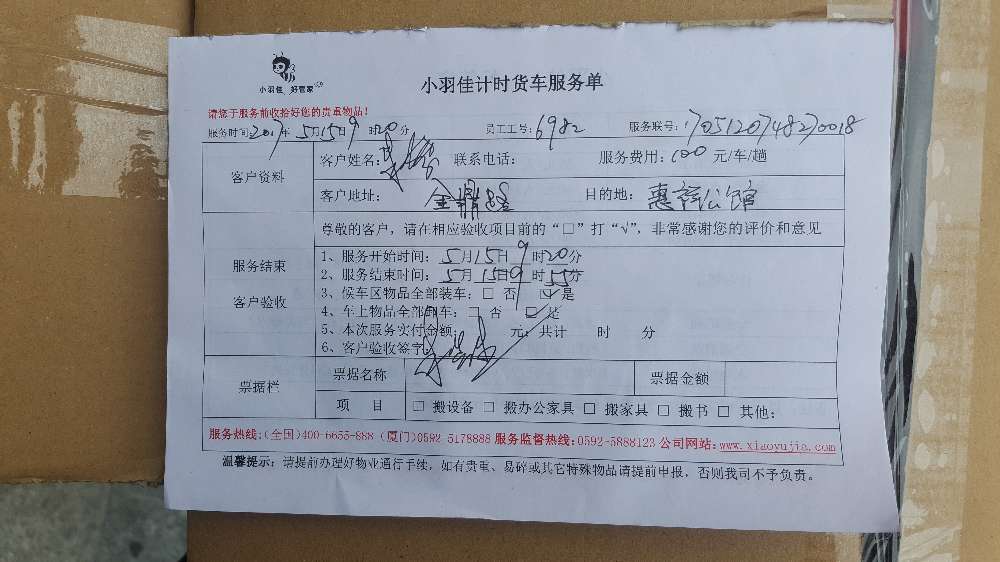 小羽佳 好管家
小羽佳计时货车服务单
请您于服务前收拾好您的贵重物品！
服务时间：2017年 5月15日9 时20分 员工工号：6982 服务联号：170512074820018
客户资料
客户姓名： 联系电话： 服务费用：100 元/车/趟
客户地址： 金鼎 目的地：惠 公馆
尊敬的客户，请在相应验收项目前的“□”打“√”，非常感谢您的评价和意见
服务结束
客户验收
1、服务开始时间：5月15日9时20分
2、服务结束时间：5月15日9时55分
3、候车区物品全部装车：□ 否 ☑ 是
4、车上物品全部卸车：□ 否 ☑ 是
5、本次服务实付金额： 元；共计 时 分
6、客户验收签字：
票据栏
票据名称 票据金额
项 目 □ 搬设备 □ 搬办公家具 □ 搬家具 □ 搬书 □ 其他：
服务热线：(全国)400-6655-888 (厦门)0592-5178888 服务监督热线：0592-5888123 公司网站：www.xiaoyujia.com
温馨提示：请提前办理好物业通行手续，如有贵重、易碎或其它特殊物品请提前申报，否则我司不予负责。